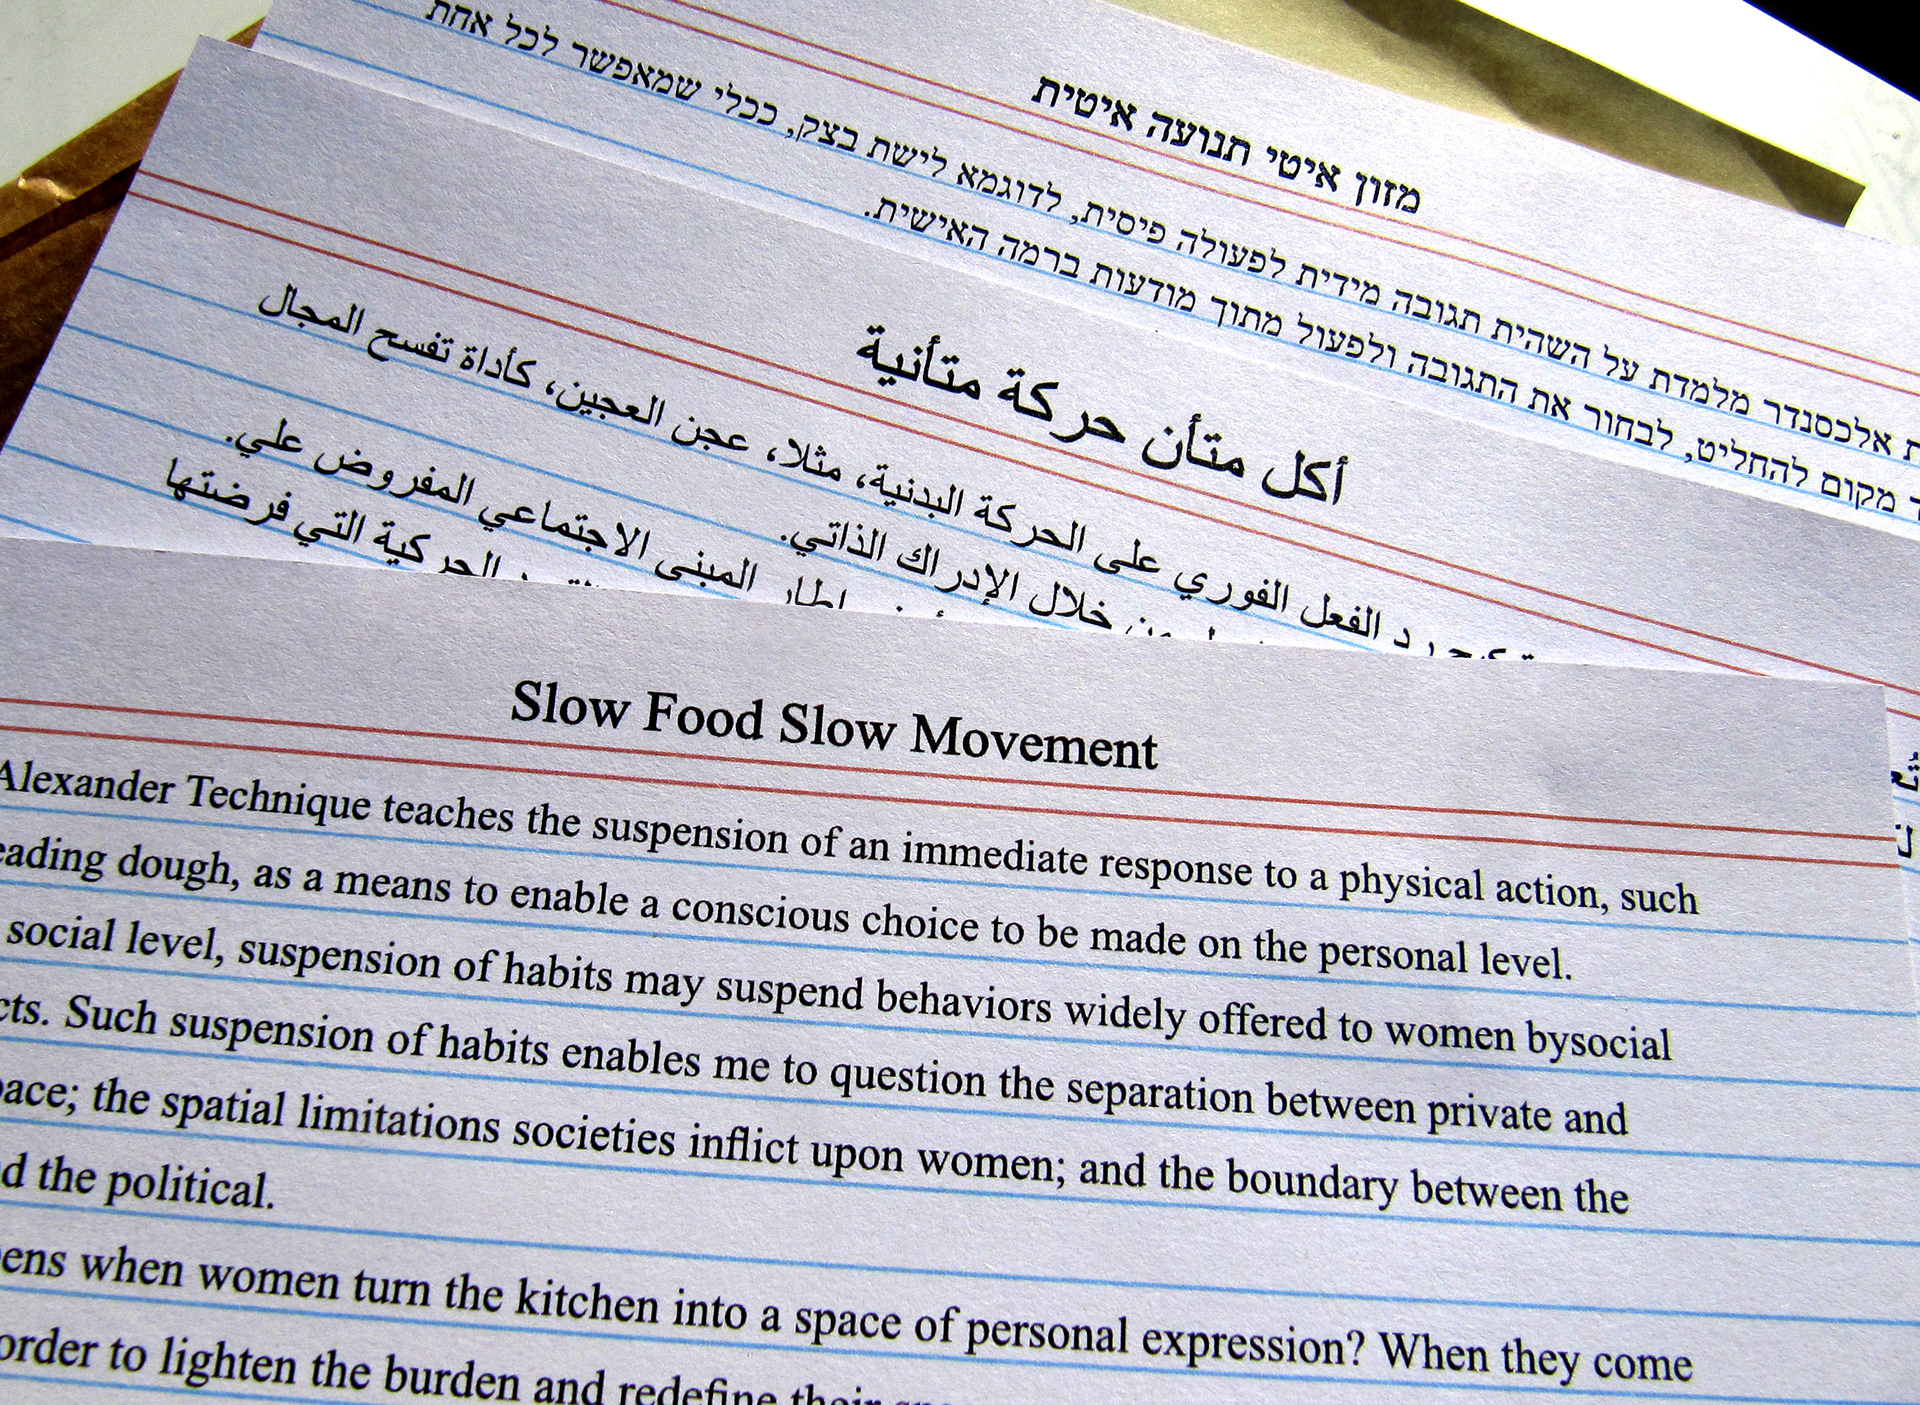 מזון איטי תנועה איטית
אלכסנדר מלמדת על השהית תגובה מידית לפעולה פיסית, לדוגמא לישת בצק, ככלי שמאפשר לכל אחת
מקום להחליט, לבחור את התגובה ולפעול מתוך מודעות ברמה האישית.
أكل متأن حركة متأنية
رد الفعل الفوري على الحركة البدنية، مثلا، عجن العجين، كأداة تفسح المجال
خلال الإدراك الذاتي.
المبنى الاجتماعي المفروض علي.
الحركية التي فرضتها
Slow Food Slow Movement
Alexander Technique teaches the suspension of an immediate response to a physical action, such
eading dough, as a means to enable a conscious choice to be made on the personal level.
social level, suspension of habits may suspend behaviors widely offered to women bysocial
cts. Such suspension of habits enables me to question the separation between private and
pace; the spatial limitations societies inflict upon women; and the boundary between the
d the political.
ens when women turn the kitchen into a space of personal expression? When they come
order to lighten the burden and redefine their